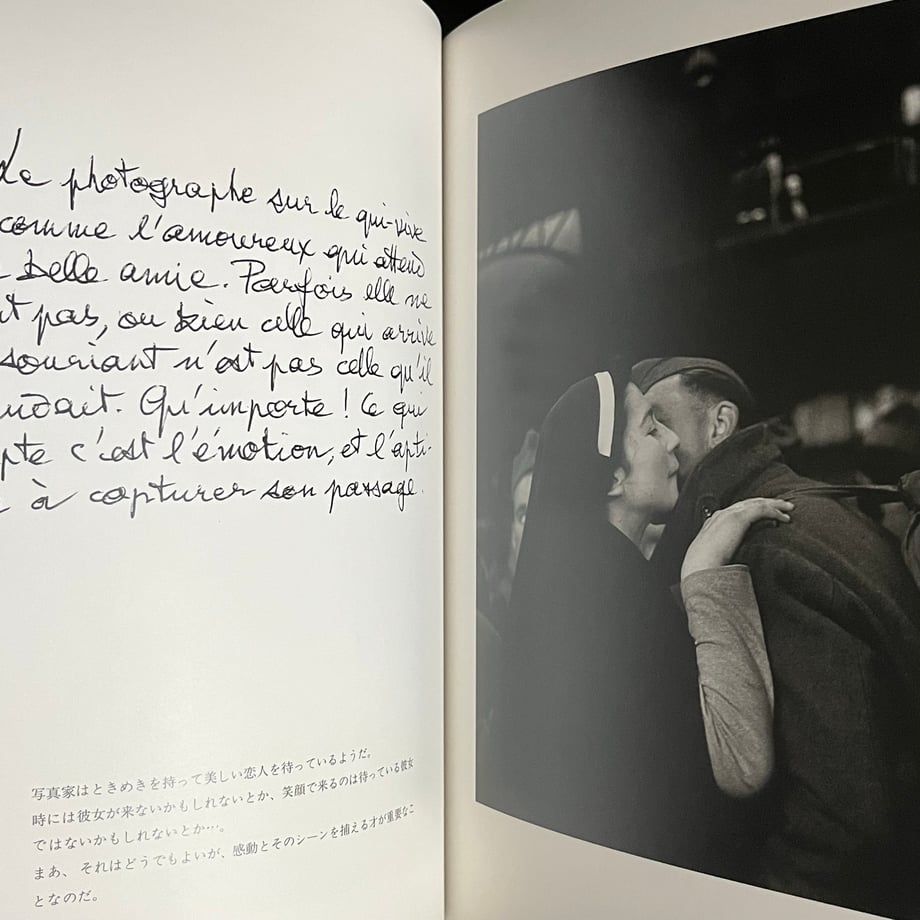 Le photographe sur le qui-vive
comme l'amoureux qui attend
belle amie. Parfois elle ne
pas, ou bien celle qui arrive
souriant n'est pas celle qu'il
Qu'importe ! Ce qui
c'est l'émotion, et l'apti-
à capturer son passage.
写真家はときめきを持って美しい恋人を待っているようだ。
時には彼女が来ないかもしれないとか、笑顔で来るのは待っている彼女
ではないかもしれないとか…。
まあ、それはどうでもよいが、感動とそのシーンを捕える才が重要なこ
となのだ。